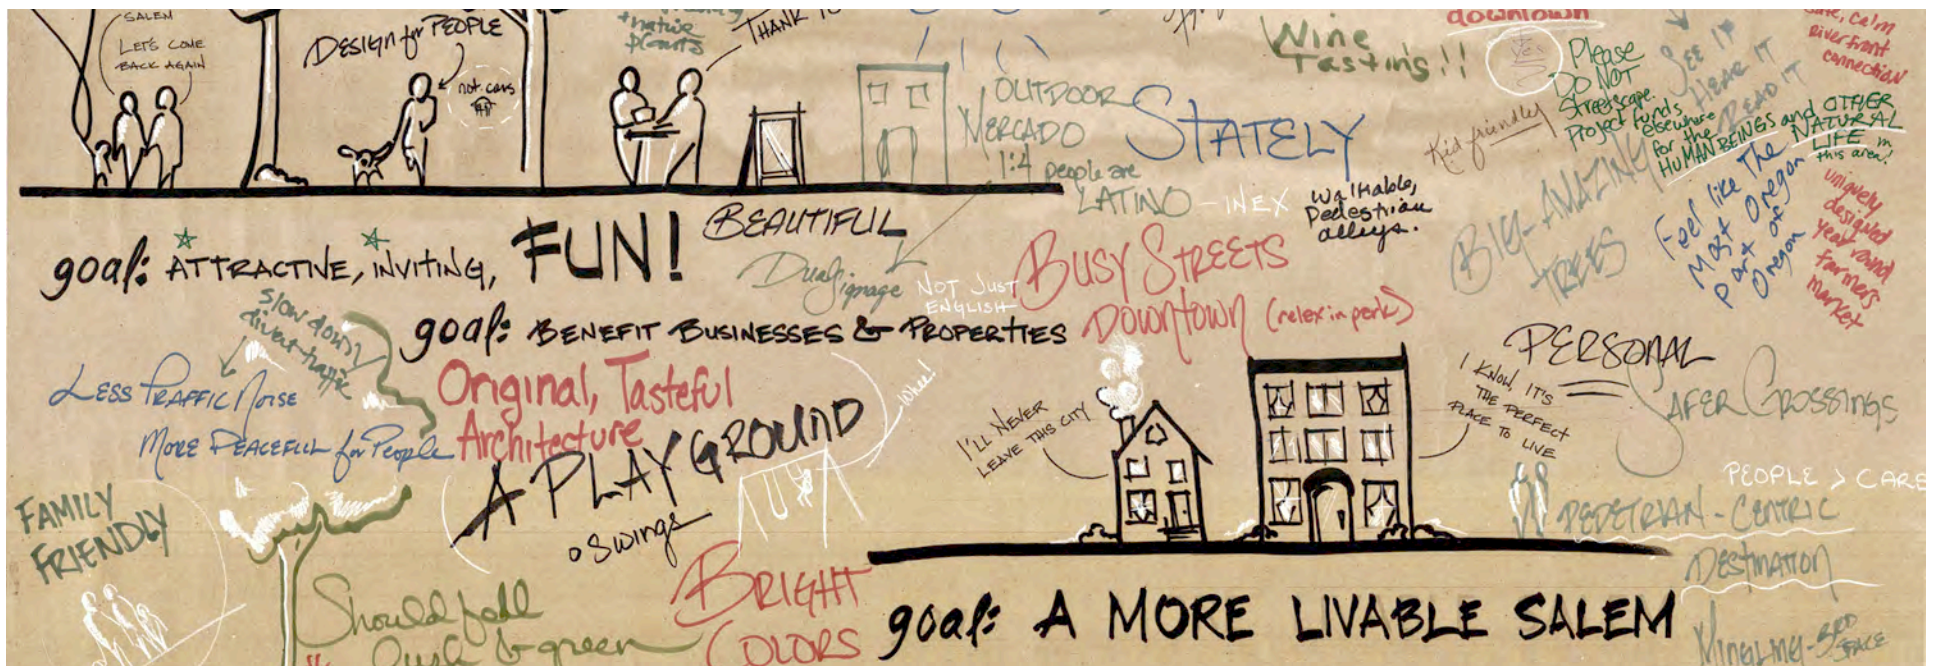 SALEM
LET'S COME
BACK AGAIN
DESIGN for PEOPLE
not cars
native
plants
THANK
OUTDOOR
MERCADO
1:4 people are
LATINO - INEX
STATELY
Wine
Tasting's!!
downtown
yes
Kid friendly
Please
DO NOT
Streetscape
Project funds
elsewhere
for the
HUMAN BEINGS and OTHER
NATURAL
LIFE in
this area!
SEE IT
HEAR IT
READ IT
calm
riverfront
connection
Walkable,
Pedestrian
alleys.
BIG-AMAZING
TREES
Feel like The
Most Oregon
part of
Oregon
uniquely
designed
year round
farmers
market
goal: ATTRACTIVE, INVITING, FUN!
BEAUTIFUL
Dual Signage
NOT JUST
ENGLISH
BUSY STREETS
DOWNTOWN (relex in park)
goal: BENEFIT BUSINESSES & PROPERTIES
Slow down/
divert traffic
LESS TRAFFIC NOISE
MORE PEACEFUL for People
Original, Tasteful
Architecture
A PLAYGROUND
Swings
Whee!
I'LL NEVER
LEAVE THIS CITY
I KNOW, IT'S
THE PERFECT
PLACE TO LIVE
PERSONAL
SAFER CROSSINGS
PEOPLE > CARE
PEDETRIAN-CENTRIC
DESTINATION
MINGLING-3RD
SPACE
FAMILY
FRIENDLY
Should feel
lush & green
BRIGHT
COLORS
goal: A MORE LIVABLE SALEM